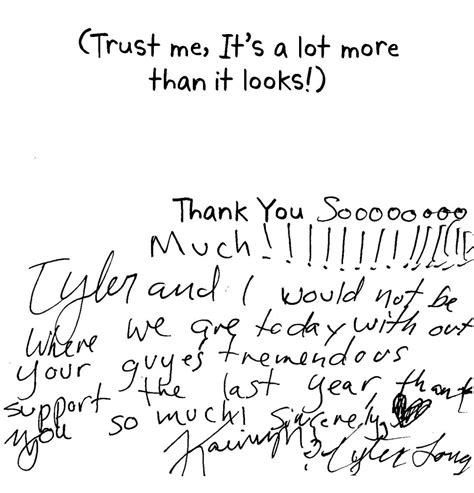 (Trust me, It's a lot more
than it looks!)
Thank You Sooooooooo
Much!!!!!!!!!!!!
Tyler and I would not be
where we are today with out
your guyes tremendous
support the last year, thank
you so much! Sincerely,
Tyler Long